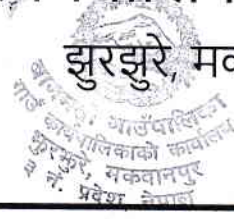 झुरझुरे, मक
गाउँपालिका
गाउँ कार्यपालिकाको कार्यालय
झुरझुरे, मकवानपुर
३ नं. प्रदेश नेपाल